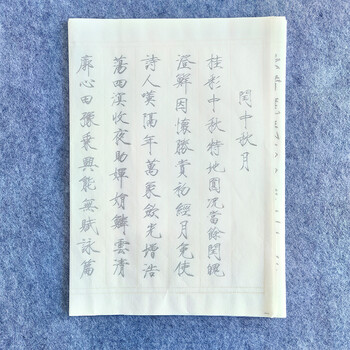 閏中秋月
桂彩中秋特地圓況當餘閏魄
澄鮮因懷勝賞初經月免使
詩人嘆隔年萬象斂光增浩
蕩四溟收夜助嬋娟鱗雲清
廓心田豫乘興能無賦詠篇